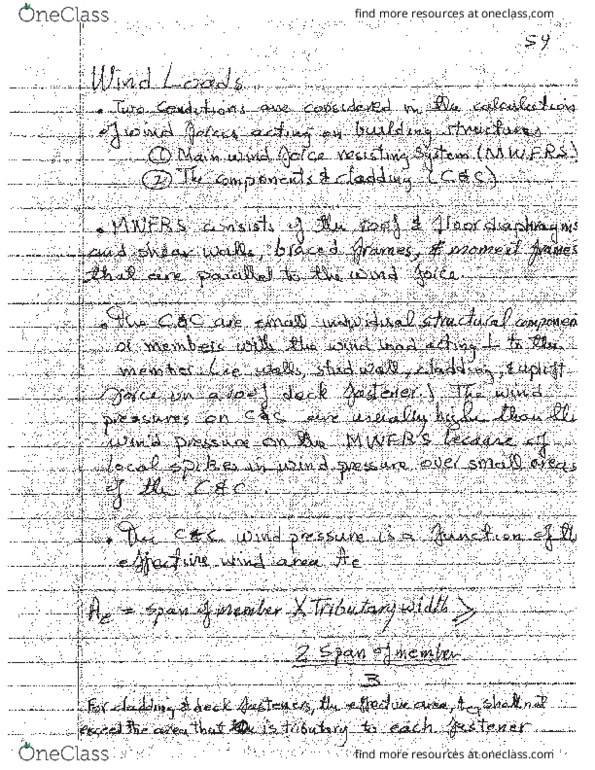 OneClass find more resources at oneclass.com
54
Wind Loads
• Two conditions are considered in the calculation
of wind forces acting on building structures
① Main wind force resisting System (MWFRS)
② The components & cladding (C&C)
• MWFRS consists of the roof & floor diaphragms
and shear walls, braced frames, & moment frames
that are parallel to the wind force.
• The C&C are small individual structural componen
or members with the wind load acting ⊥ to the
member (i.e. walls, stud wall, cladding, & uplift
force on a roof deck fastener.) The wind
pressures on C&C are usually higher than the
wind pressure on the MWFRS because of
local spikes in wind pressure over small areas
of the C&C.
• The C&C wind pressure is a function of th
effective wind area Ae
Ae = span of member X Tributary width ≥
2 Span of member
3
For cladding & deck fasteners, the effective area, shall not
exceed the area that is tributary to each fastener
OneClass find more resources at oneclass.com